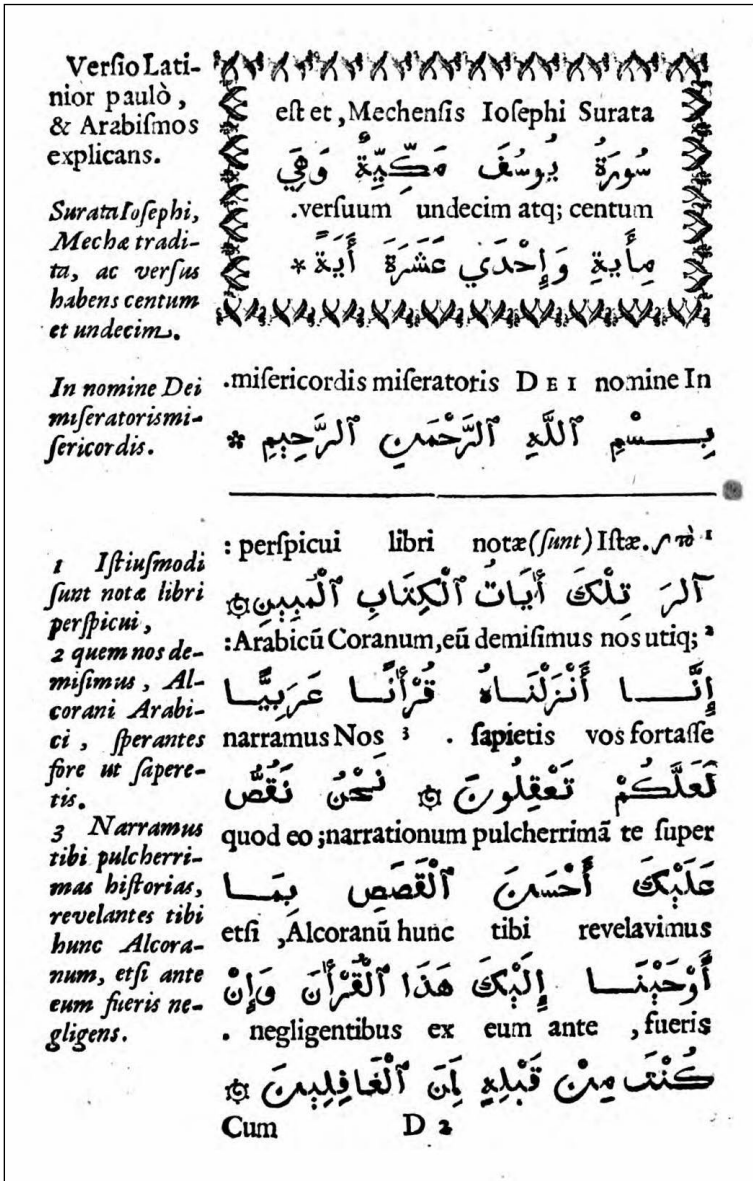 Versio Lati-
nior paulò,
& Arabismos
explicans.
Surata Iosephi,
Mechæ tradi-
ta, ac versus
habens centum
et undecim.
In nomine Dei
miseratoris mi-
sericordis.
1 Istiusmodi
sunt notæ libri
perspicui,
2 quem nos de-
misimus, Al-
corani Arabi-
ci, sperantes
fore ut sapere-
tis.
3 Narramus
tibi pulcherri-
mas historias,
revelantes tibi
hunc Alcora-
num, etsi ante
eum fueris ne-
gligens.
est et, Mechensis Iosephi Surata
سُورَةُ يُوسُفَ مَكِّيَّةٌ وَهِيَ
.versuum undecim atq; centum
مِأَيةِ وَإِحْدَي عَشَرَةَ أَيَةً *
.misericordis miseratoris DEI nomine In
بِسْمِ ٱللَّهِ ٱلرَّحْمَنِ ٱلرَّحِيمِ *
: perspicui libri notæ (sunt) Istæ. 1
آلرَ تِلْكَ أَيَاتُ ٱلْكِتَابِ ٱلْمُبِينِ۞
:Arabicū Coranum, eū demisimus nos utiq; 2
إِنَّا أَنْزَلْنَاهُ قُرْأَنًا عَرَبِيًّا
narramus Nos 3 . sapietis vos fortasse
لَعَلَّكُمْ تَعْقِلُونَ ۞ نَحْنُ نَقُصُّ
quod eo; narrationum pulcherrimā te super
عَلَيْكَ أَحْسَنَ ٱلْقَصَصِ بِمَا
etsi ,Alcoranū hunc tibi revelavimus
أَوْحَيْنَا إِلَيْكَ هَذَا ٱلْقُرْأَنَ وَإِنْ
. negligentibus ex eum ante , fueris
كُنْتَ مِنْ قَبْلِهِ لَمِنَ ٱلْغَافِلِينَ ۞
Cum D 2